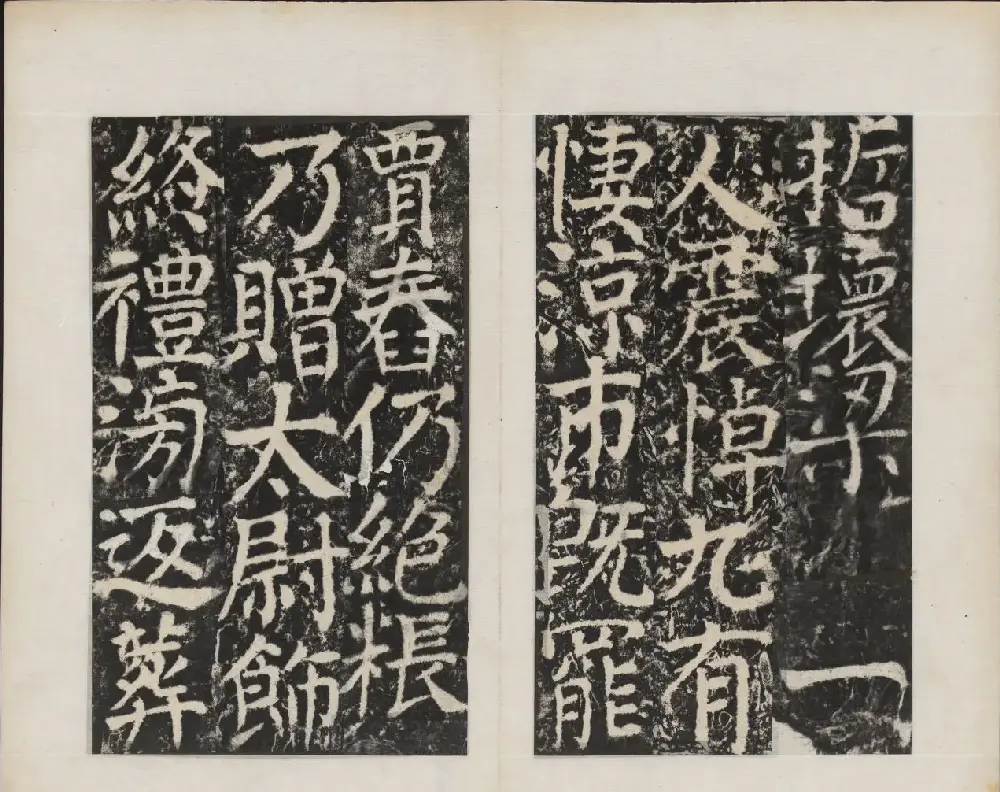 哲壞梁一
人震悼九有
悽涼市既罷
賈舂仍絕粻
乃贈太尉飾
終禮滂返葬